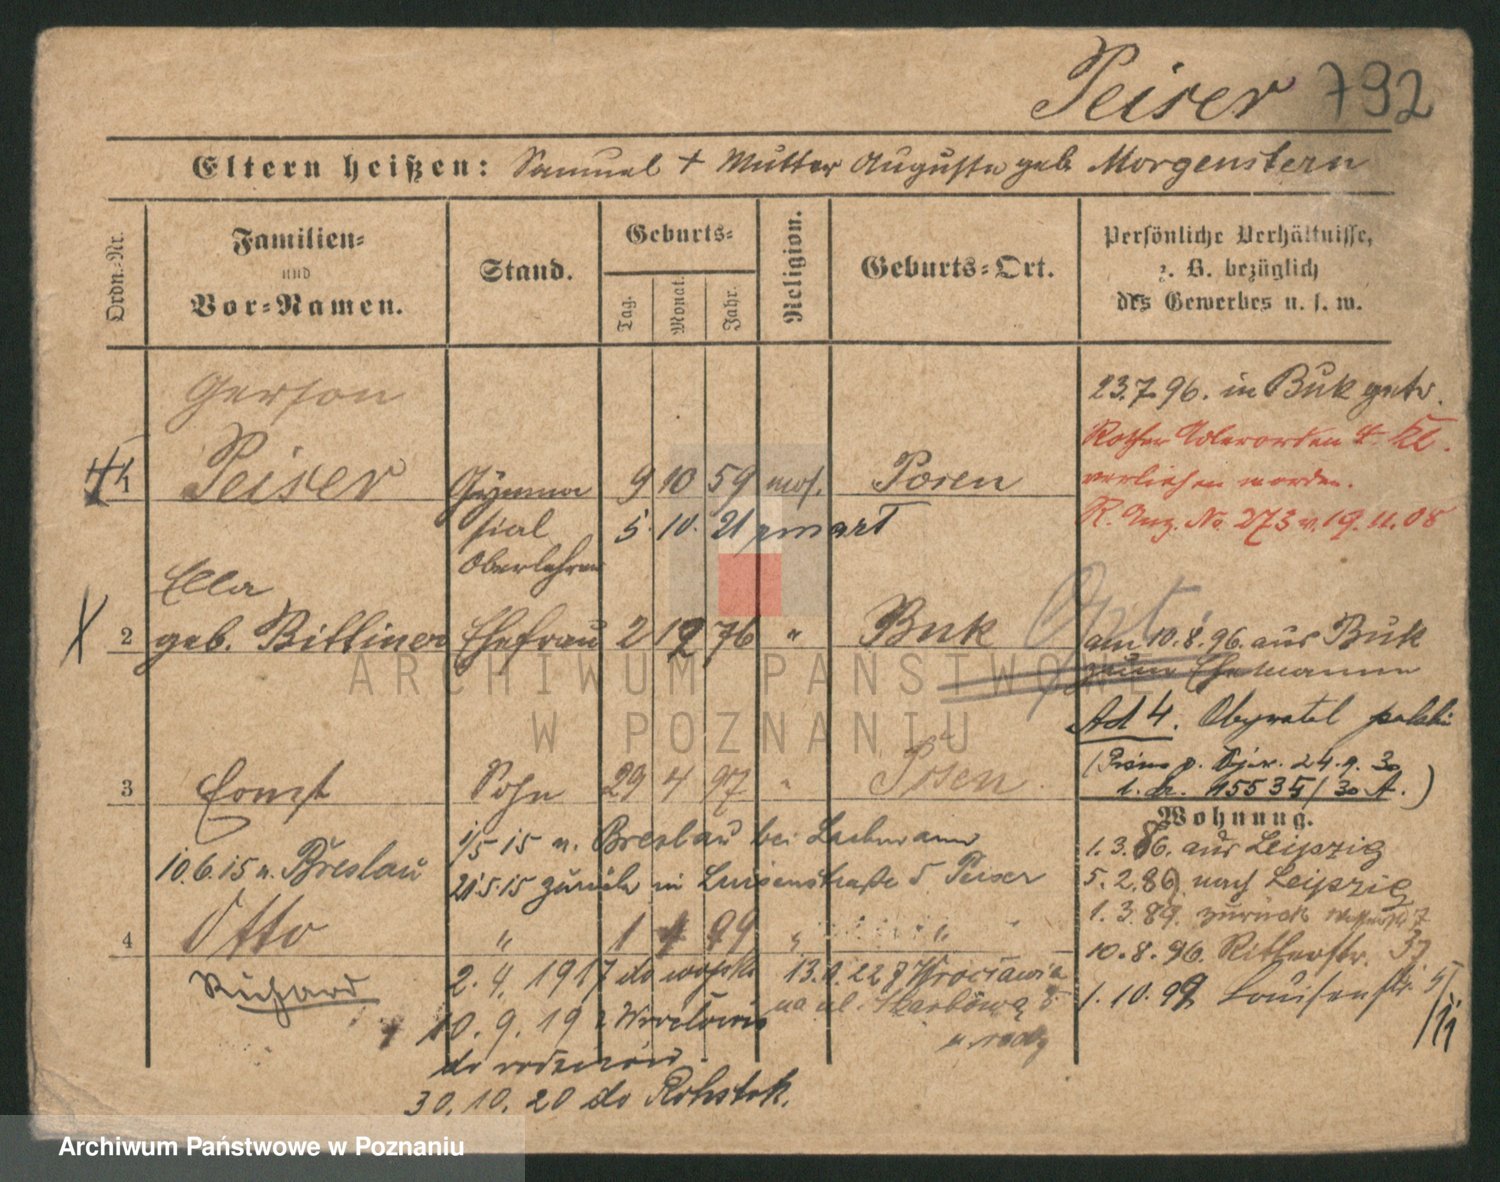 Peiser 792
Eltern heißen: Samuel + Mutter Auguste geb. Morgenstern
Ordn.-Nr.
Familien-
und
Vor-Namen.
Stand.
Geburts-
Tag.
Monat.
Jahr.
Religion.
Geburts-Ort.
Persönliche Verhältnisse,
z. B. bezüglich
des Gewerbes u. s. w.
Gerson
1 Peiser Gymna 9 10 59 mos. Posen
sial 5. 10. 21 zmarł
Oberlehrer
23.7.96. in Buk getr.
Rother Adlerorden 4. Kl.
verliehen worden.
R. Anz. No 273 v. 19.11.08
Ella
2 geb. Bittiner Ehefrau 2 12 76 " Buk
am 10.8.96. aus Buk
zum Ehemanne
Ad 4. Obywatel polski
24.9.30
3 Ernst Sohn 29 4 97 " Posen
Wohnung.
1/5 15 n. Breslau bei Lachmann
10.6.15 n. Breslau
21.5.15 zurück in Luisenstraße 5 Peiser
1.3.86. aus Leipzig
5.2.86 nach Leipzig
1.3.89. zurück
10.8.96. Ritterstr. 37
1.10.99 Louisenstr. 5
4 Otto " 1 4 99 " "
Richard
2. 4. 1917 do wojska
10. 9. 19 z Wrocławia
do rodziców.
30. 10. 20 do Rohstok.
13. 22 z Wrocławia
na ul. Skarbową 8
ARCHIWUM PAŃSTWOWE
W POZNANIU
Archiwum Państwowe w Poznaniu